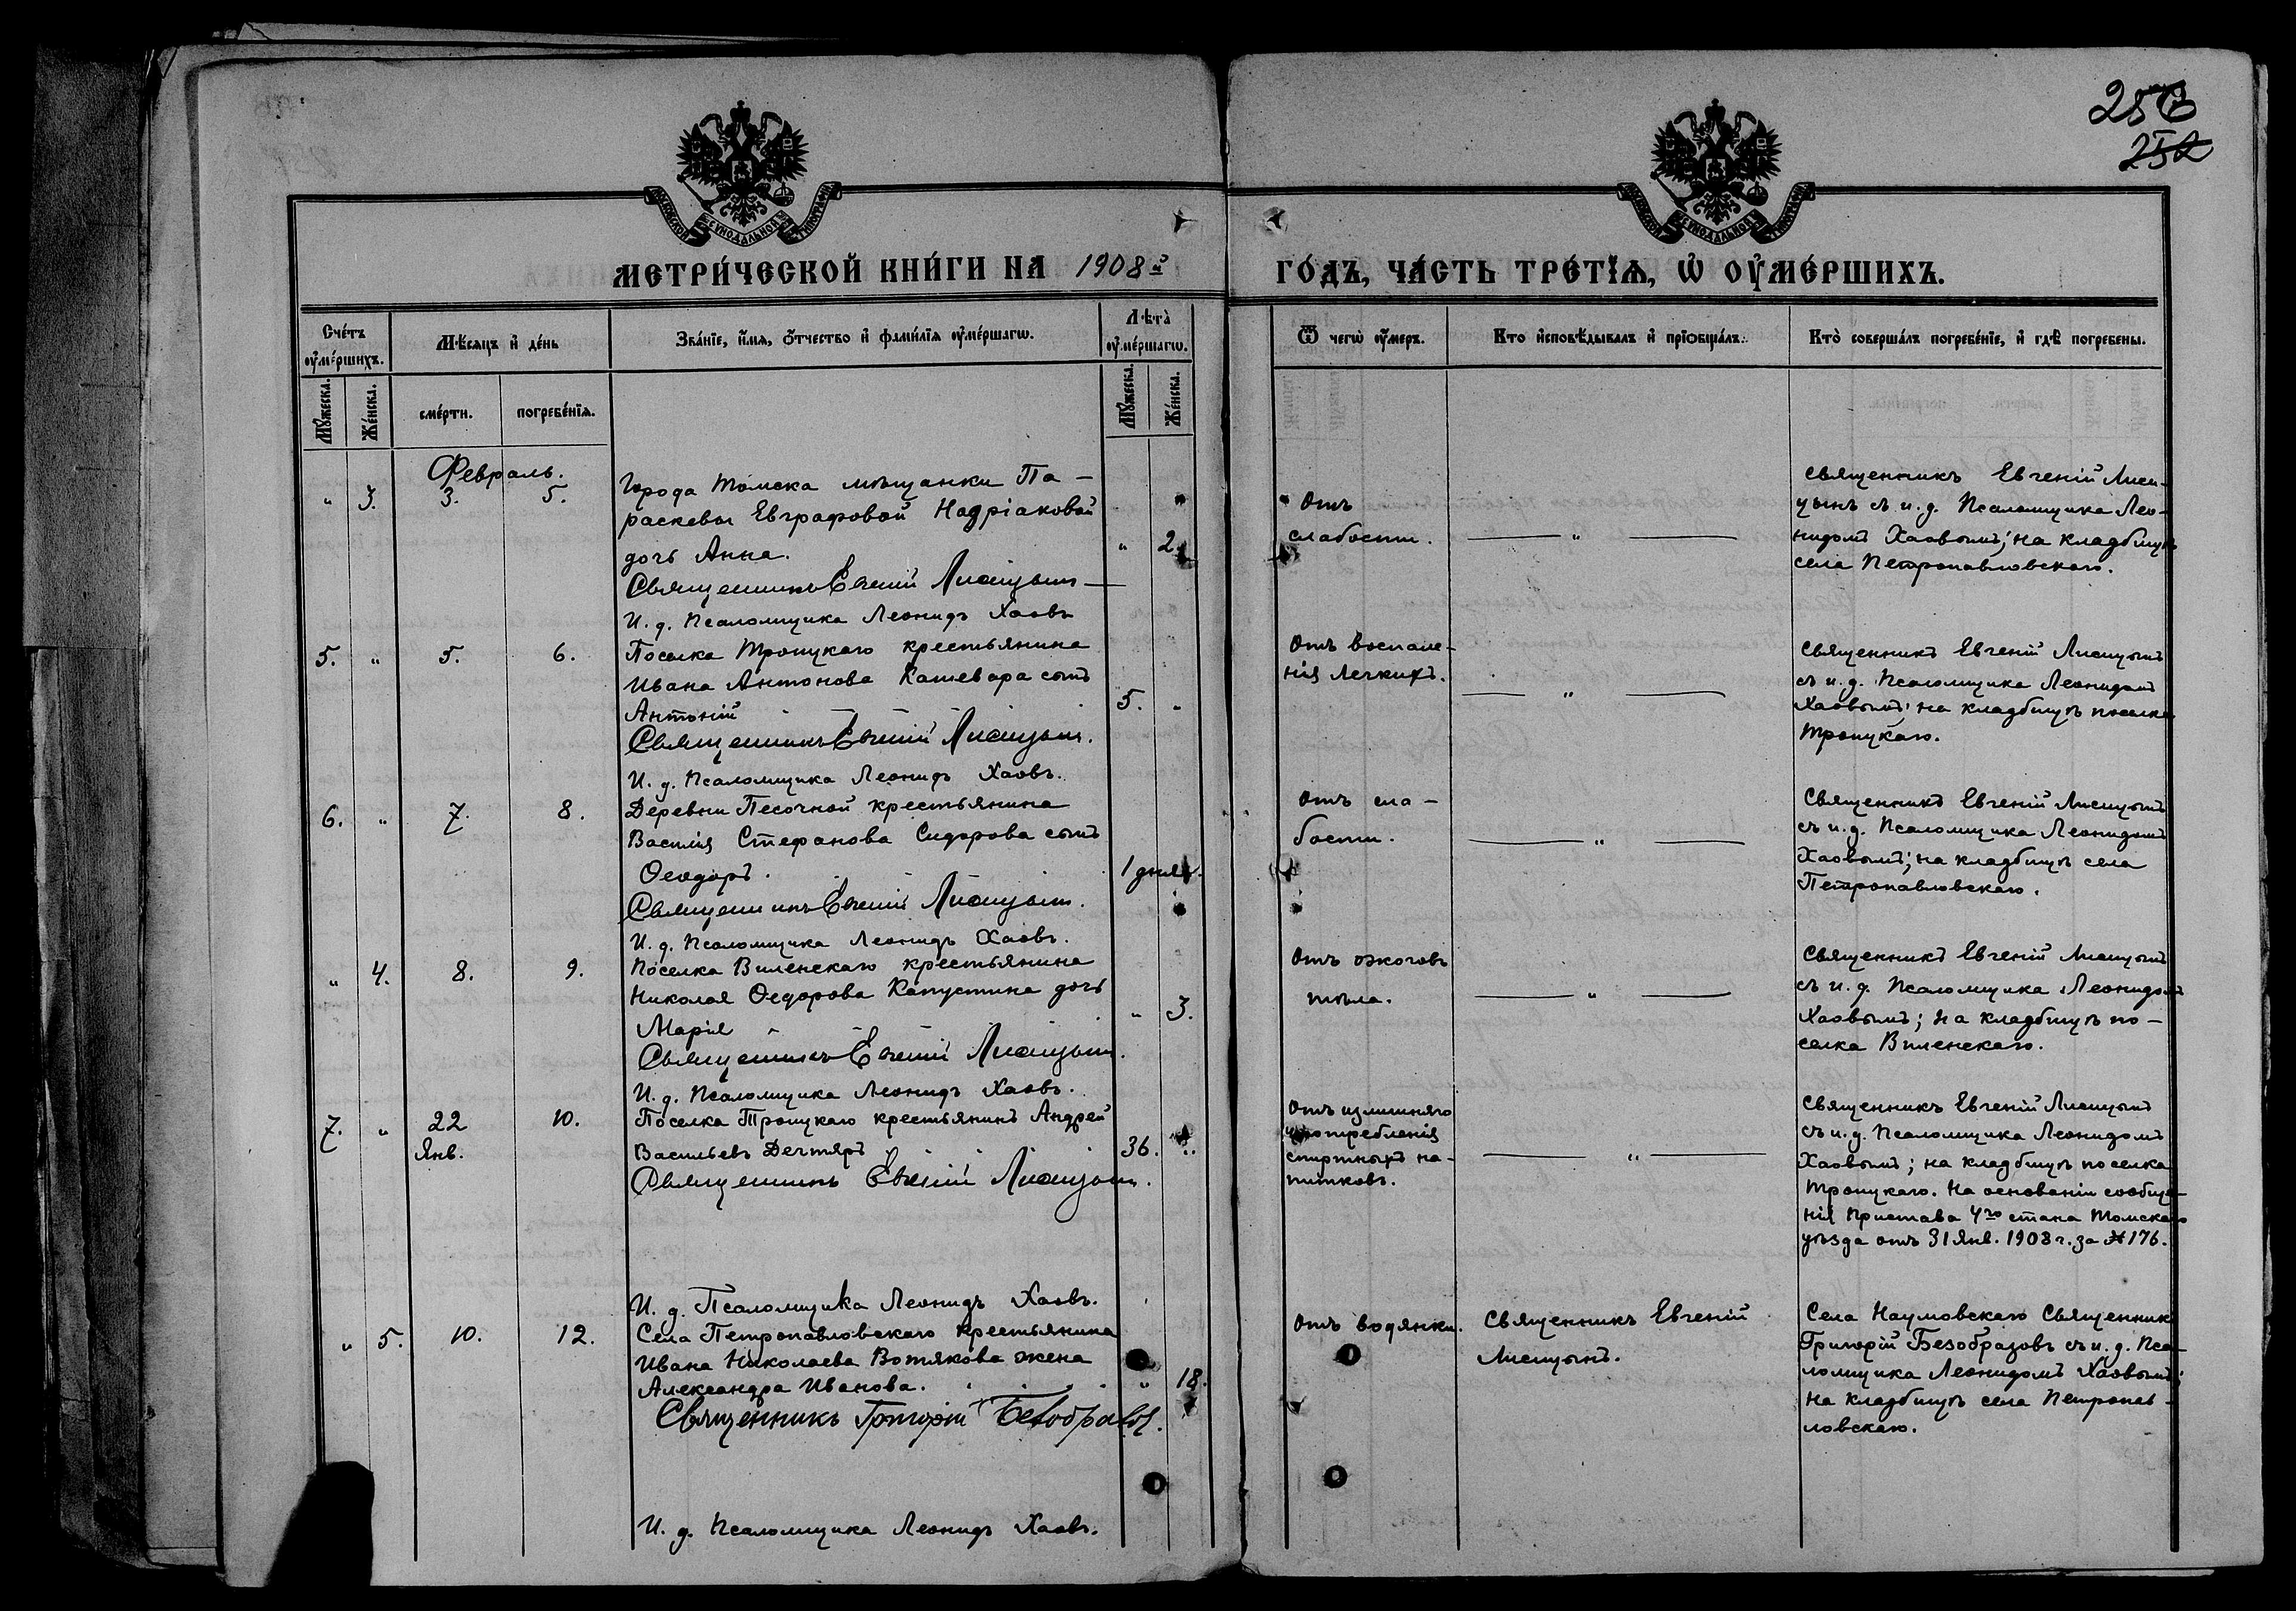 256
252
МОСКОВСКОЙ СѴНОДАЛЬНОЙ ТИПОГРАФІИ
МОСКОВСКОЙ СѴНОДАЛЬНОЙ ТИПОГРАФІИ
МЕТРИ́ЧЕСКОЙ КНИ́ГИ НА 1908й
ГО́ДЪ, ЧА́СТЬ ТРЕ́ТЇѦ, Ѡ҆ ОУ҆МЕ́РШИХЪ.
Сче́тъ оу҆ме́ршихъ.
Мѣсѧцъ и҆ де́нь
Зва́нїе, и҆́мѧ, ѻ҆́тчество и҆ фами́лїѧ оу҆ме́ршагѡ.
Лѣта̀ оу҆ме́ршагѡ.
Ѿ чегѡ̀ оу҆́меръ.
Кто̀ и҆сповѣ́дывалъ и҆ прїѻбща́лъ.
Кто̀ соверша́лъ погребе́нїе, и҆ гдѣ̀ погребены.
Мꙋ́жеска.
Же́нска.
сме́рти.
погребе́нїѧ.
Мꙋ́жеска.
Же́нска.
Февраль.
" 3. 3. 5.
Города Томска мѣщанки Па-
раскевы Евграфовой Надріаковой
дочь Анна. " 2.
Священникъ Евгеній Лисицынъ
И. д. Псаломщика Леонидъ Хаовъ
Отъ
слабости.
"
Священникъ Евгеній Лиси-
цынъ съ и. д. Псаломщика Лео-
нидомъ Хаовымъ; на кладбищѣ
села Петропавловскаго.
5. " 5. 6.
Поселка Троицкаго крестьянина
Ивана Антонова Кашевара сынъ
Антоній 5. "
Священникъ Евгеній Лисицынъ.
И. д. Псаломщика Леонидъ Хаовъ.
Отъ воспале-
нія легкихъ.
"
Священникъ Евгеній Лисицынъ
съ и. д. Псаломщика Леонидомъ
Хаовымъ; на кладбищѣ поселка
Троицкаго.
6. " 7. 8.
Деревни Песочной крестьянина
Василія Стефанова Сидорова сынъ
Ѳеодоръ. 1 дня.
Священникъ Евгеній Лисицынъ.
И. д. Псаломщика Леонидъ Хаовъ.
Отъ сла-
бости.
"
Священникъ Евгеній Лисицынъ
съ и. д. Псаломщика Леонидомъ
Хаовымъ; на кладбищѣ села
Петропавловскаго.
" 4. 8. 9.
Поселка Виленскаго крестьянина
Николая Ѳедорова Капустина дочь
Марія " 3.
Священникъ Евгеній Лисицынъ.
И. д. Псаломщика Леонидъ Хаовъ.
Отъ ожоговъ
тѣла.
"
Священникъ Евгеній Лисицынъ
съ и. д. Псаломщика Леонидомъ
Хаовымъ; на кладбищѣ по-
селка Виленскаго.
7. " 22 10.
Янв.
Поселка Троицкаго крестьянинъ Андрей
Васильевъ Дегтярь 36. "
Священникъ Евгеній Лисицынъ.
И. д. Псаломщика Леонидъ Хаовъ.
Отъ излишняго
употребленія
спиртныхъ на-
питковъ.
"
Священникъ Евгеній Лисицынъ
съ и. д. Псаломщика Леонидомъ
Хаовымъ; на кладбищѣ поселка
Троицкаго. На основаніи сообще-
нія Пристава 4го стана Томскаго
уѣзда отъ 31 Янв. 1908 г. за № 176.
" 5. 10. 12.
Села Петропавловскаго крестьянина
Ивана Николаева Вотякова жена
Александра Иванова. " 18.
Священникъ Григорій Безобразов.
И. д. Псаломщика Леонидъ Хаовъ.
Отъ водянки.
Священникъ Евгеній
Лисицынъ.
Села Наумовскаго Священникъ
Григорій Безобразовъ съ и. д. Пса-
ломщика Леонидомъ Хаовымъ;
на кладбищѣ села Петропав-
ловскаго.